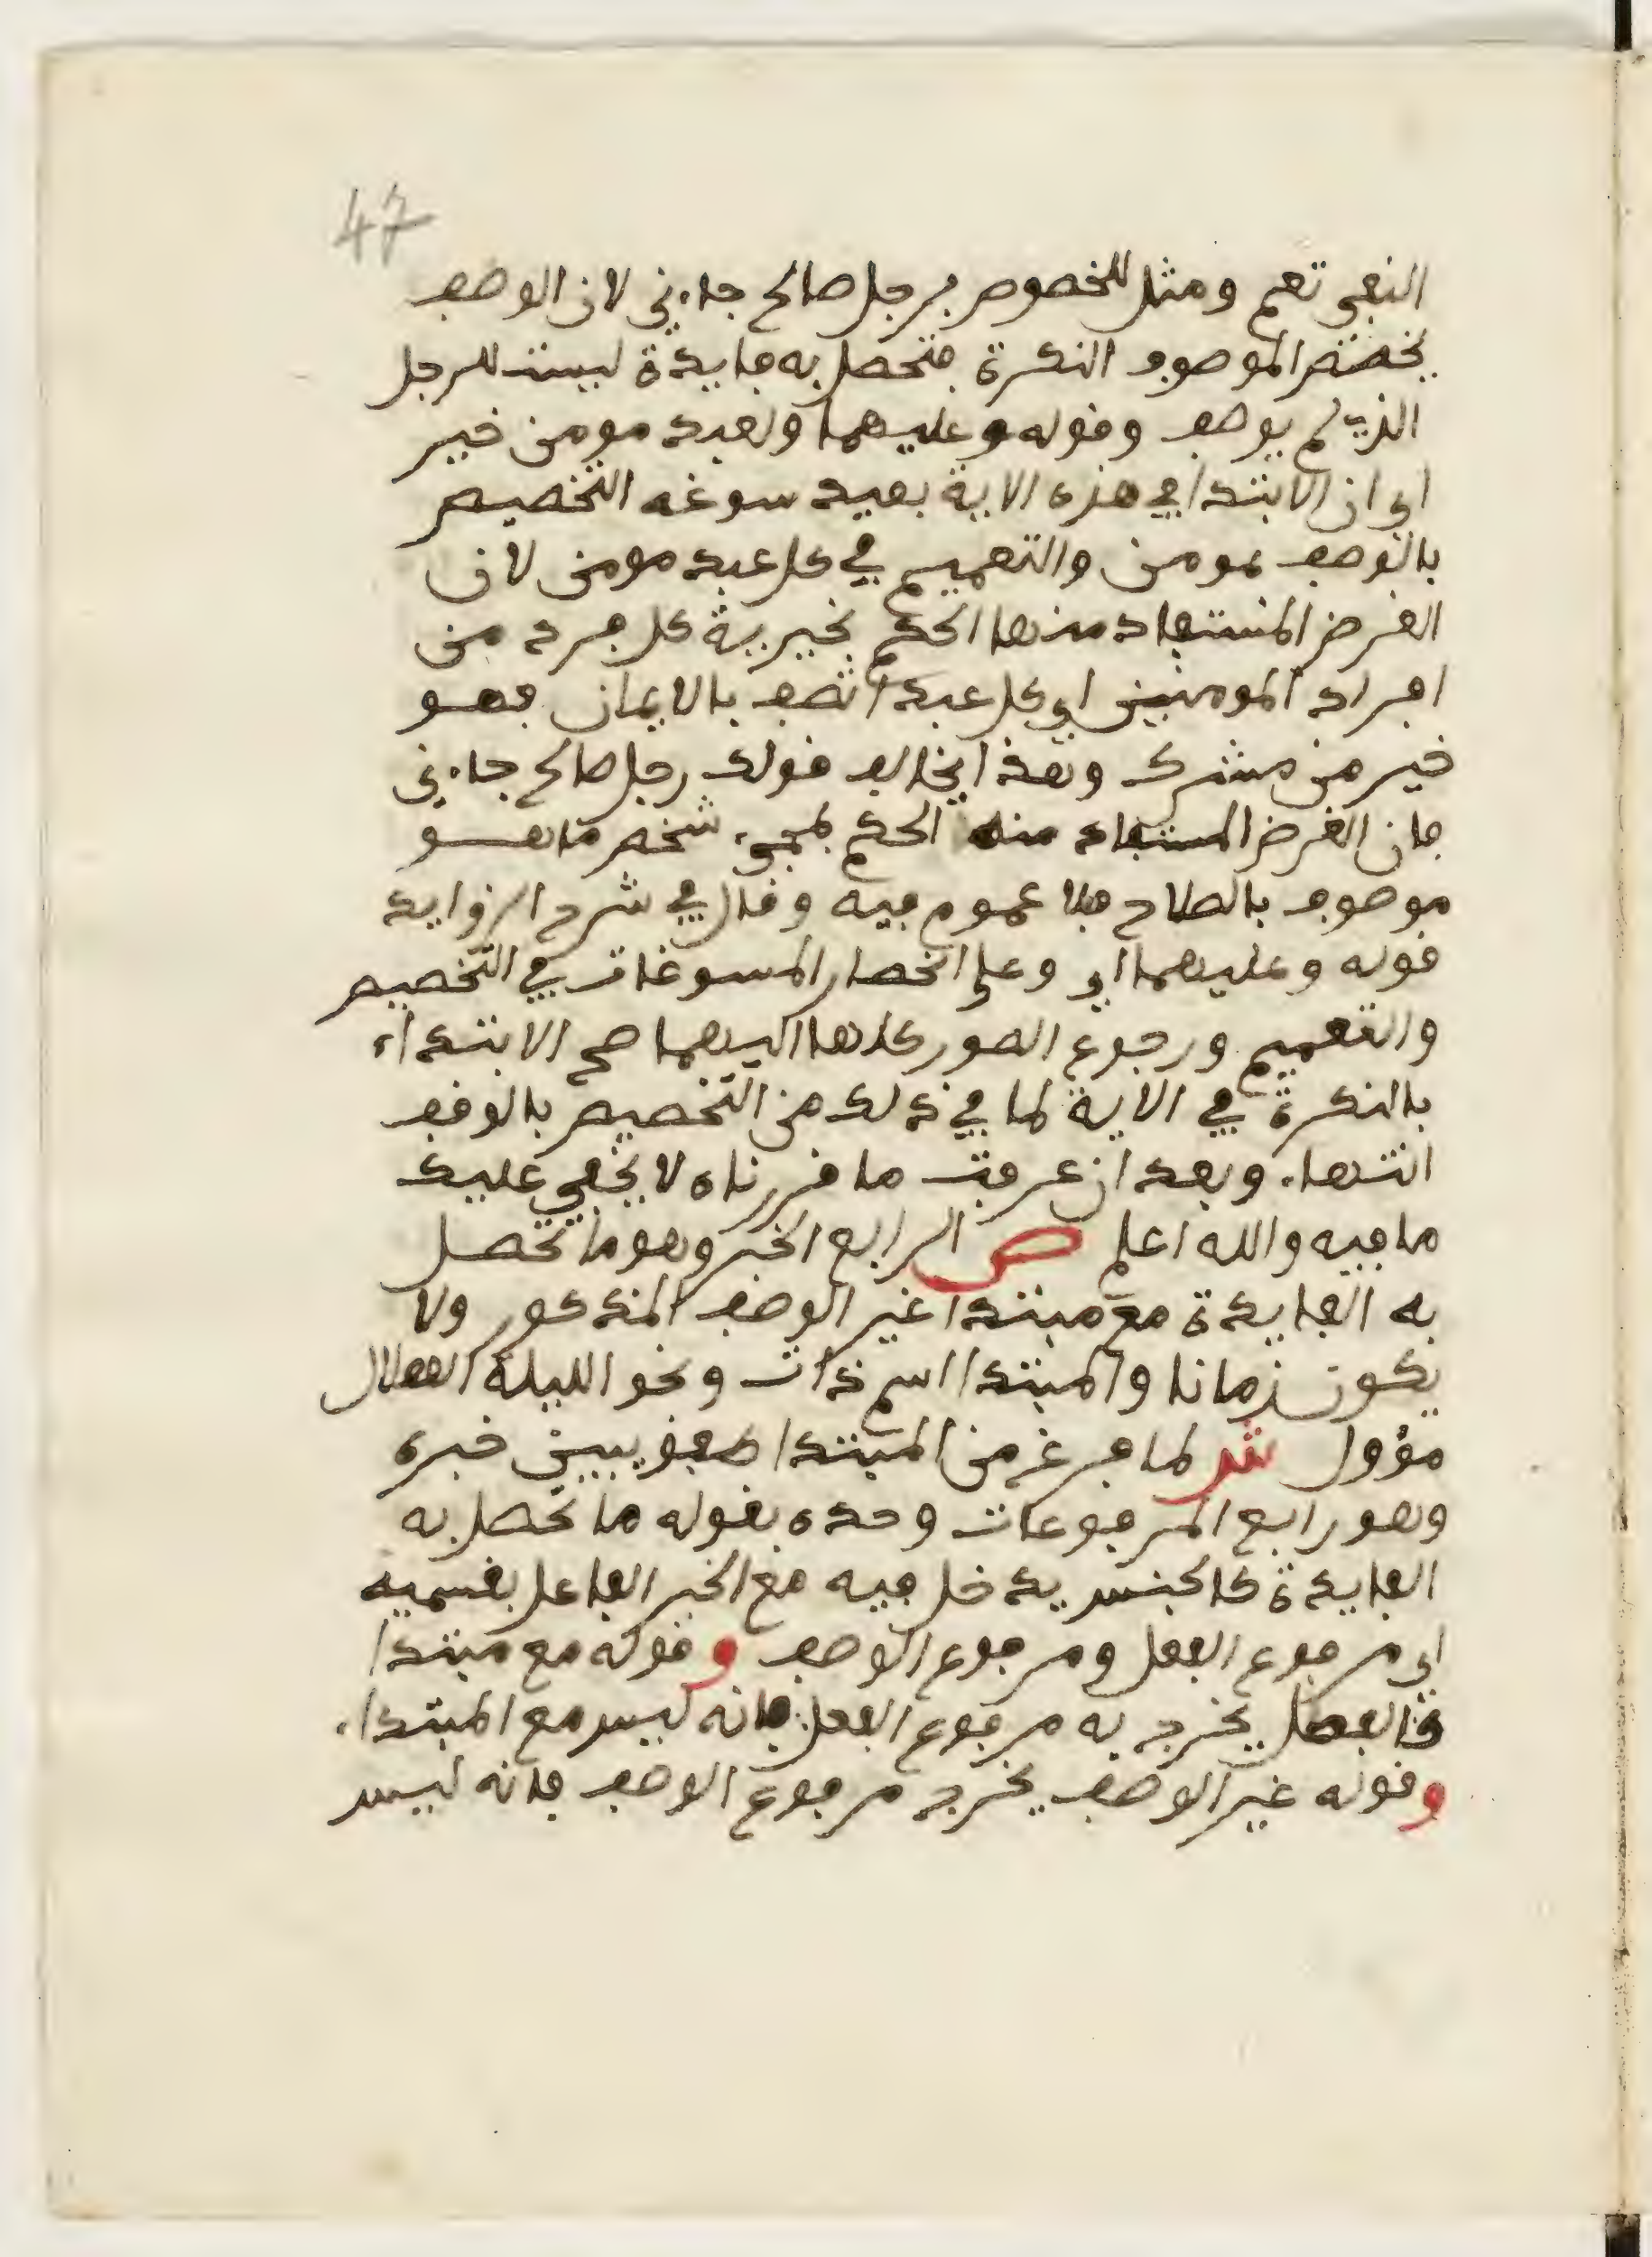 47
النفي تعم ومثل للخصوص برجل صالح جاءني لان الوصف
يخصص الموصوف النكرة فتحصل به فايدة ليست للرجل
الذي لم يوصف وقوله وعليهما ولعبد مومن خير
اي ان الابتدا في هذه الاية بعبد سوغه التخصيص
بالوصف بمومن والتعميم في كل عبد مومن لان
الغرض المستفاد منها الحكم بخيرية كل فرد من
افراد المومنين اي كل عبد اتصف بالايمان فهو
خير من مشرك وهذا بخلاف قولك رجل صالح جاءني
فان الغرض المستفاد منه الحكم بمجيء شخص ما هو
موصوف بالصلاح فلا عموم فيه وقال في شرح الزوايد
قوله وعليهما اي وعلى انحصار المسوغات في التخصيص
والتعميم ورجوع الصور كلها اليهما صح الابتداء
بالنكرة في الاية لما في ذلك من التخصيص بالوقف
انتهاء وبعد ان عرفت ما قررناه لا يخفي عليك
ما فيه والله اعلم ص الرابع الخبر وهو ما تحصل
به الفايدة مع مبتدا غير الوصف المذكور ولا
يكون زمانا والمبتدا اسم ذات ونحو الليلة الهلال
مؤول ش لما فرغ من المبتدا طفق يبين خبره
وهو رابع المرفوعات وحده بقوله ما تحصل به
الفايدة كالجنس يدخل فيه مع الخبر الفاعل بقسميه
اي مرفوع الفعل ومرفوع الوصف وقوله مع مبتدا
كالفصل يخرج به مرفوع الفعل فانه ليس مع المبتداء
وقوله غير الوصف يخرج مرفوع الوصف فانه ليس